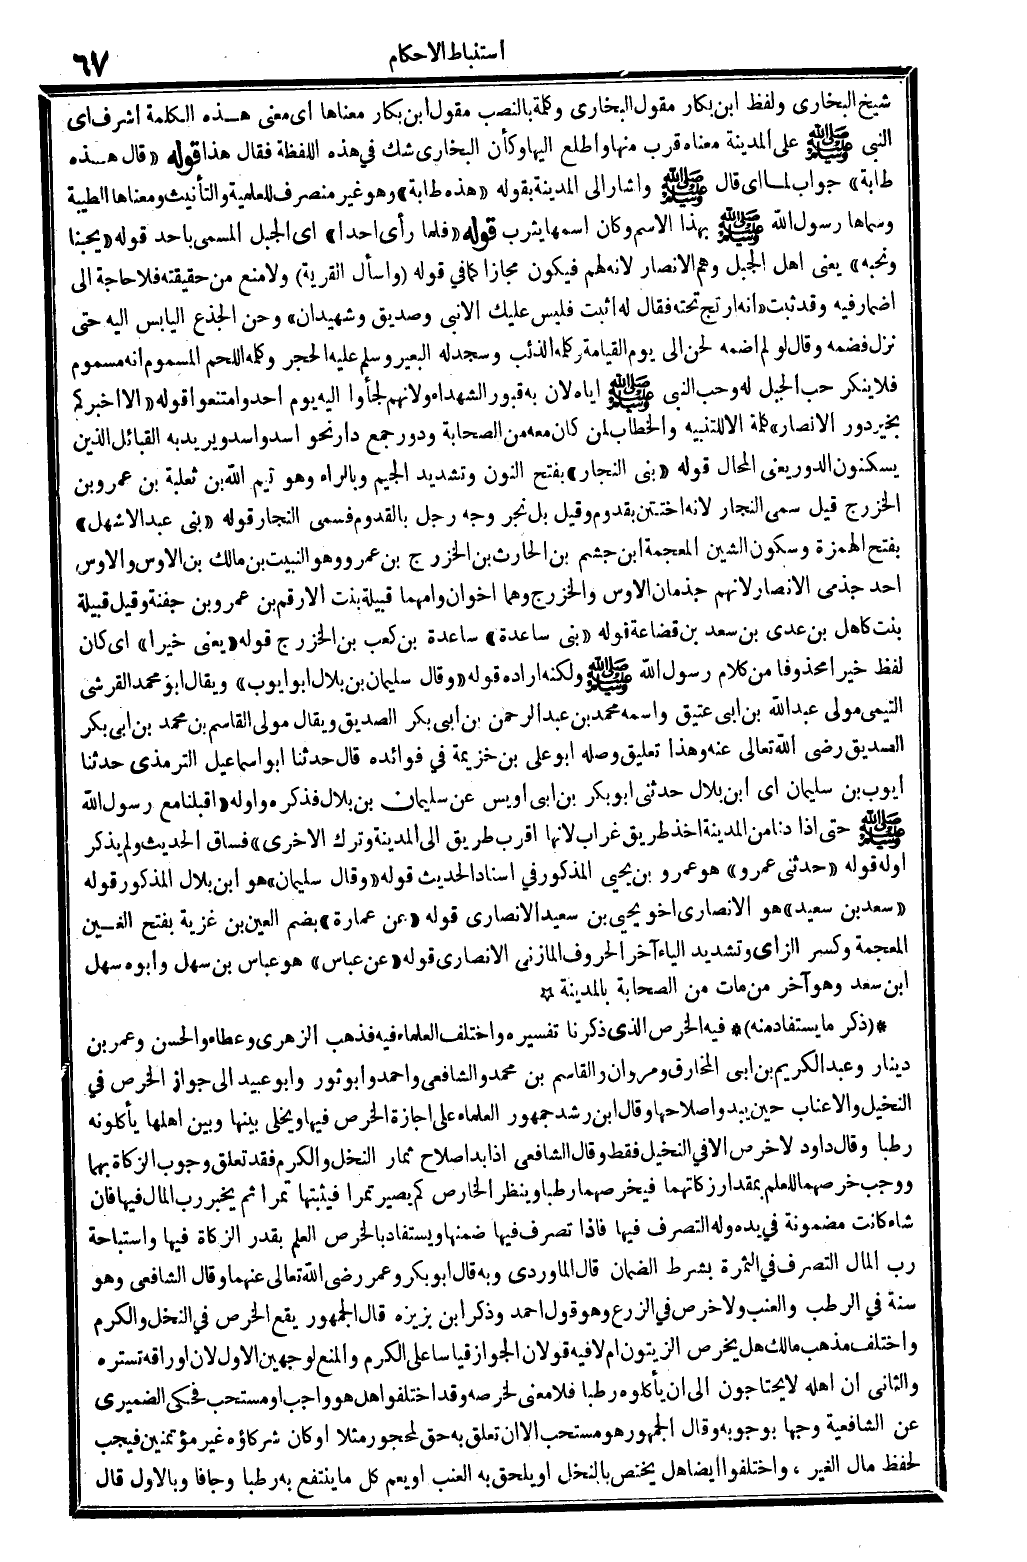 ٦٧
استنباط الاحكام
شيخ البخارى ولفظ ابن بكار مقول البخارى وكلمة بالنصب مقول ابن بكار معناها اى معنى هـذه الكلمة أشرف اى
النبى ﷺ على المدينة معناه قرب منها واطلع اليها وكأن البخارى شك فى هذه اللفظة فقال هذا قوله «قال هـذه
طابة» جواب لما اى قال ﷺ واشار الى المدينة بقوله «هذه طابة» وهو غير منصرف للعلمية والتأنيث ومعناها الطيبة
وسماها رسول الله ﷺ بهذا الاسم وكان اسمها يثرب قوله «فلما رأى احدا» اى الجبل المسمى باحد قوله «يحبنا
ونحبه» يعنى اهل الجبل وهم الانصار لانه لهم فيكون مجازا كما فى قوله (واسأل القرية) ولا منع من حقيقته فلا حاجة الى
اضمار فيه وقد ثبت «انه ارتج تحته فقال له اثبت فليس عليك الا نبى وصديق وشهيدان» وحن الجذع اليابس اليه حتى
نزل فضمه وقال لو لم اضمه لحن الى يوم القيامة وكلمه الذئب وسجد له البعير وسلم عليه الحجر وكلمه اللحم المسموم انه مسموم
فلا ينكر حب الجبل له وحب النبى ﷺ اياه لان به قبور الشهداء ولانهم لجأوا اليه يوم احد وامتنعوا قوله «الا اخبركم
بخير دور الانصار» كلمة الا للتنبيه والخطاب لمن كان معه من الصحابة ودور جمع دار نحو اسد واسد ويريد به القبائل الذين
يسكنون الدور يعنى المحال قوله «بنى النجار» بفتح النون وتشديد الجيم وبالراء وهو تيم الله بن ثعلبة بن عمرو بن
الخزرج قيل سمى النجار لانه اختتن بقدوم وقيل بل نجر وجه رجل بالقدوم فسمى النجار قوله «بنى عبد الاشهل»
بفتح الهمزة وسكون الشين المعجمة ابن جشم بن الحارث بن الخزرج بن عمرو وهو النبيت بن مالك بن الاوس والاوس
احد جذمى الانصار لانهم جذمان الاوس والخزرج وهما اخوان وامهما قبيلة بنت الارقم بن عمرو بن جفنة وقيل قبيلة
بنت كاهل بن عدى بن سعد بن قضاعة قوله «بنى ساعدة» ساعدة بن كعب بن الخزرج قوله «يعنى خيرا» اى كان
لفظ خيرا محذوفا من كلام رسول الله ﷺ ولكنه اراده قوله «وقال سليمان بن بلال ابو ايوب» ويقال ابو محمد القرشى
التيمى مولى عبد الله بن ابى عتيق واسمه محمد بن عبد الرحمن بن ابى بكر الصديق ويقال مولى القاسم بن محمد بن ابى بكر
الصديق رضى الله تعالى عنه وهذا تعليق وصله ابو على بن خزيمة فى فوائده قال حدثنا ابو اسماعيل الترمذى حدثنا
أيوب بن سليمان اى ابن بلال حدثنى ابو بكر بن ابى أويس عن سليمان بن بلال فذكره واوله «اقبلنا مع رسول الله
ﷺ حتى اذا دنا من المدينة اخذ طريق غراب لانها اقرب طريق الى المدينة وترك الاخرى» فساق الحديث ولم يذكر
اوله قوله «حدثنى عمرو» هو عمرو بن يحيى المذكور فى اسناد الحديث قوله «وقال سليمان» هو ابن بلال المذكور قوله
«سعد بن سعيد» هو الانصارى اخو يحيى بن سعيد الانصارى قوله «عن عمارة» بضم العين بن غزية بفتح الغـين
المعجمة وكسر الزاى وتشديد الياء آخر الحروف المازنى الانصارى قوله «عن عباس» هو عباس بن سهل وابوه سهل
ابن سعد وهو آخر من مات من الصحابة بالمدينة ☆
*(ذكر ما يستفاد منه)* فيه الخرص الذى ذكرنا تفسيره واختلف العلماء فيه فذهب الزهرى وعطاء والحسن وعمر بن
دينار وعبد الكريم بن ابى المخارق ومروان والقاسم بن محمد والشافعى واحمد وابو ثور وابو عبيد الى جواز الخرص فى
النخيل والاعناب حين يبدو اصلاحها وقال ابن رشد جمهور العلماء على اجازة الخرص فيها ويخلى بينها وبين اهلها يأكلونه
رطبا وقال داود لا خرص الا فى النخيل فقط وقال الشافعى اذا بدا صلاح ثمار النخل والكرم فقد تعلق وجوب الزكاة بهما
ووجب خرصهما للعلم بمقدار زكاتهما فيخرصهما رطبا وينظر الخارص كم يصير تمرا فيثبتها تمرا ثم يخير رب المال فيها فان
شاء كانت مضمونة فى يده وله التصرف فيها فاذا تصرف فيها ضمنها ويستفاد بالخرص العلم بقدر الزكاة فيها واستباحة
رب المال التصرف فى الثمرة بشرط الضمان قال الماوردى وبه قال ابو بكر وعمر رضى الله تعالى عنهما وقال الشافعى وهو
سنة فى الرطب والعنب ولا خرص فى الزرع وهو قول احمد وذكر ابن بزيزه قال الجمهور يقع الخرص فى النخل والكرم
واختلف مذهب مالك هل يخرص الزيتون ام لا فيه قولان الجواز قياسا على الكرم والمنع لوجهين الاول لان اوراقه تستره
والثانى ان اهله لا يحتاجون الى ان يأكلوه رطبا فلا معنى لخرصه وقد اختلفوا هل هو واجب او مستحب فحكى الضميرى
عن الشافعية وجها بوجوبه وقال الجمهور هو مستحب الا ان تعلق به حق لمحجور مثلا او كان شركاؤه غير مؤتمنين فيجب
لحفظ مال الغير ، واختلفوا ايضا هل يختص بالنخل او يلحق به العنب او يعم كل ما ينتفع به رطبا وجافا وبالاول قال